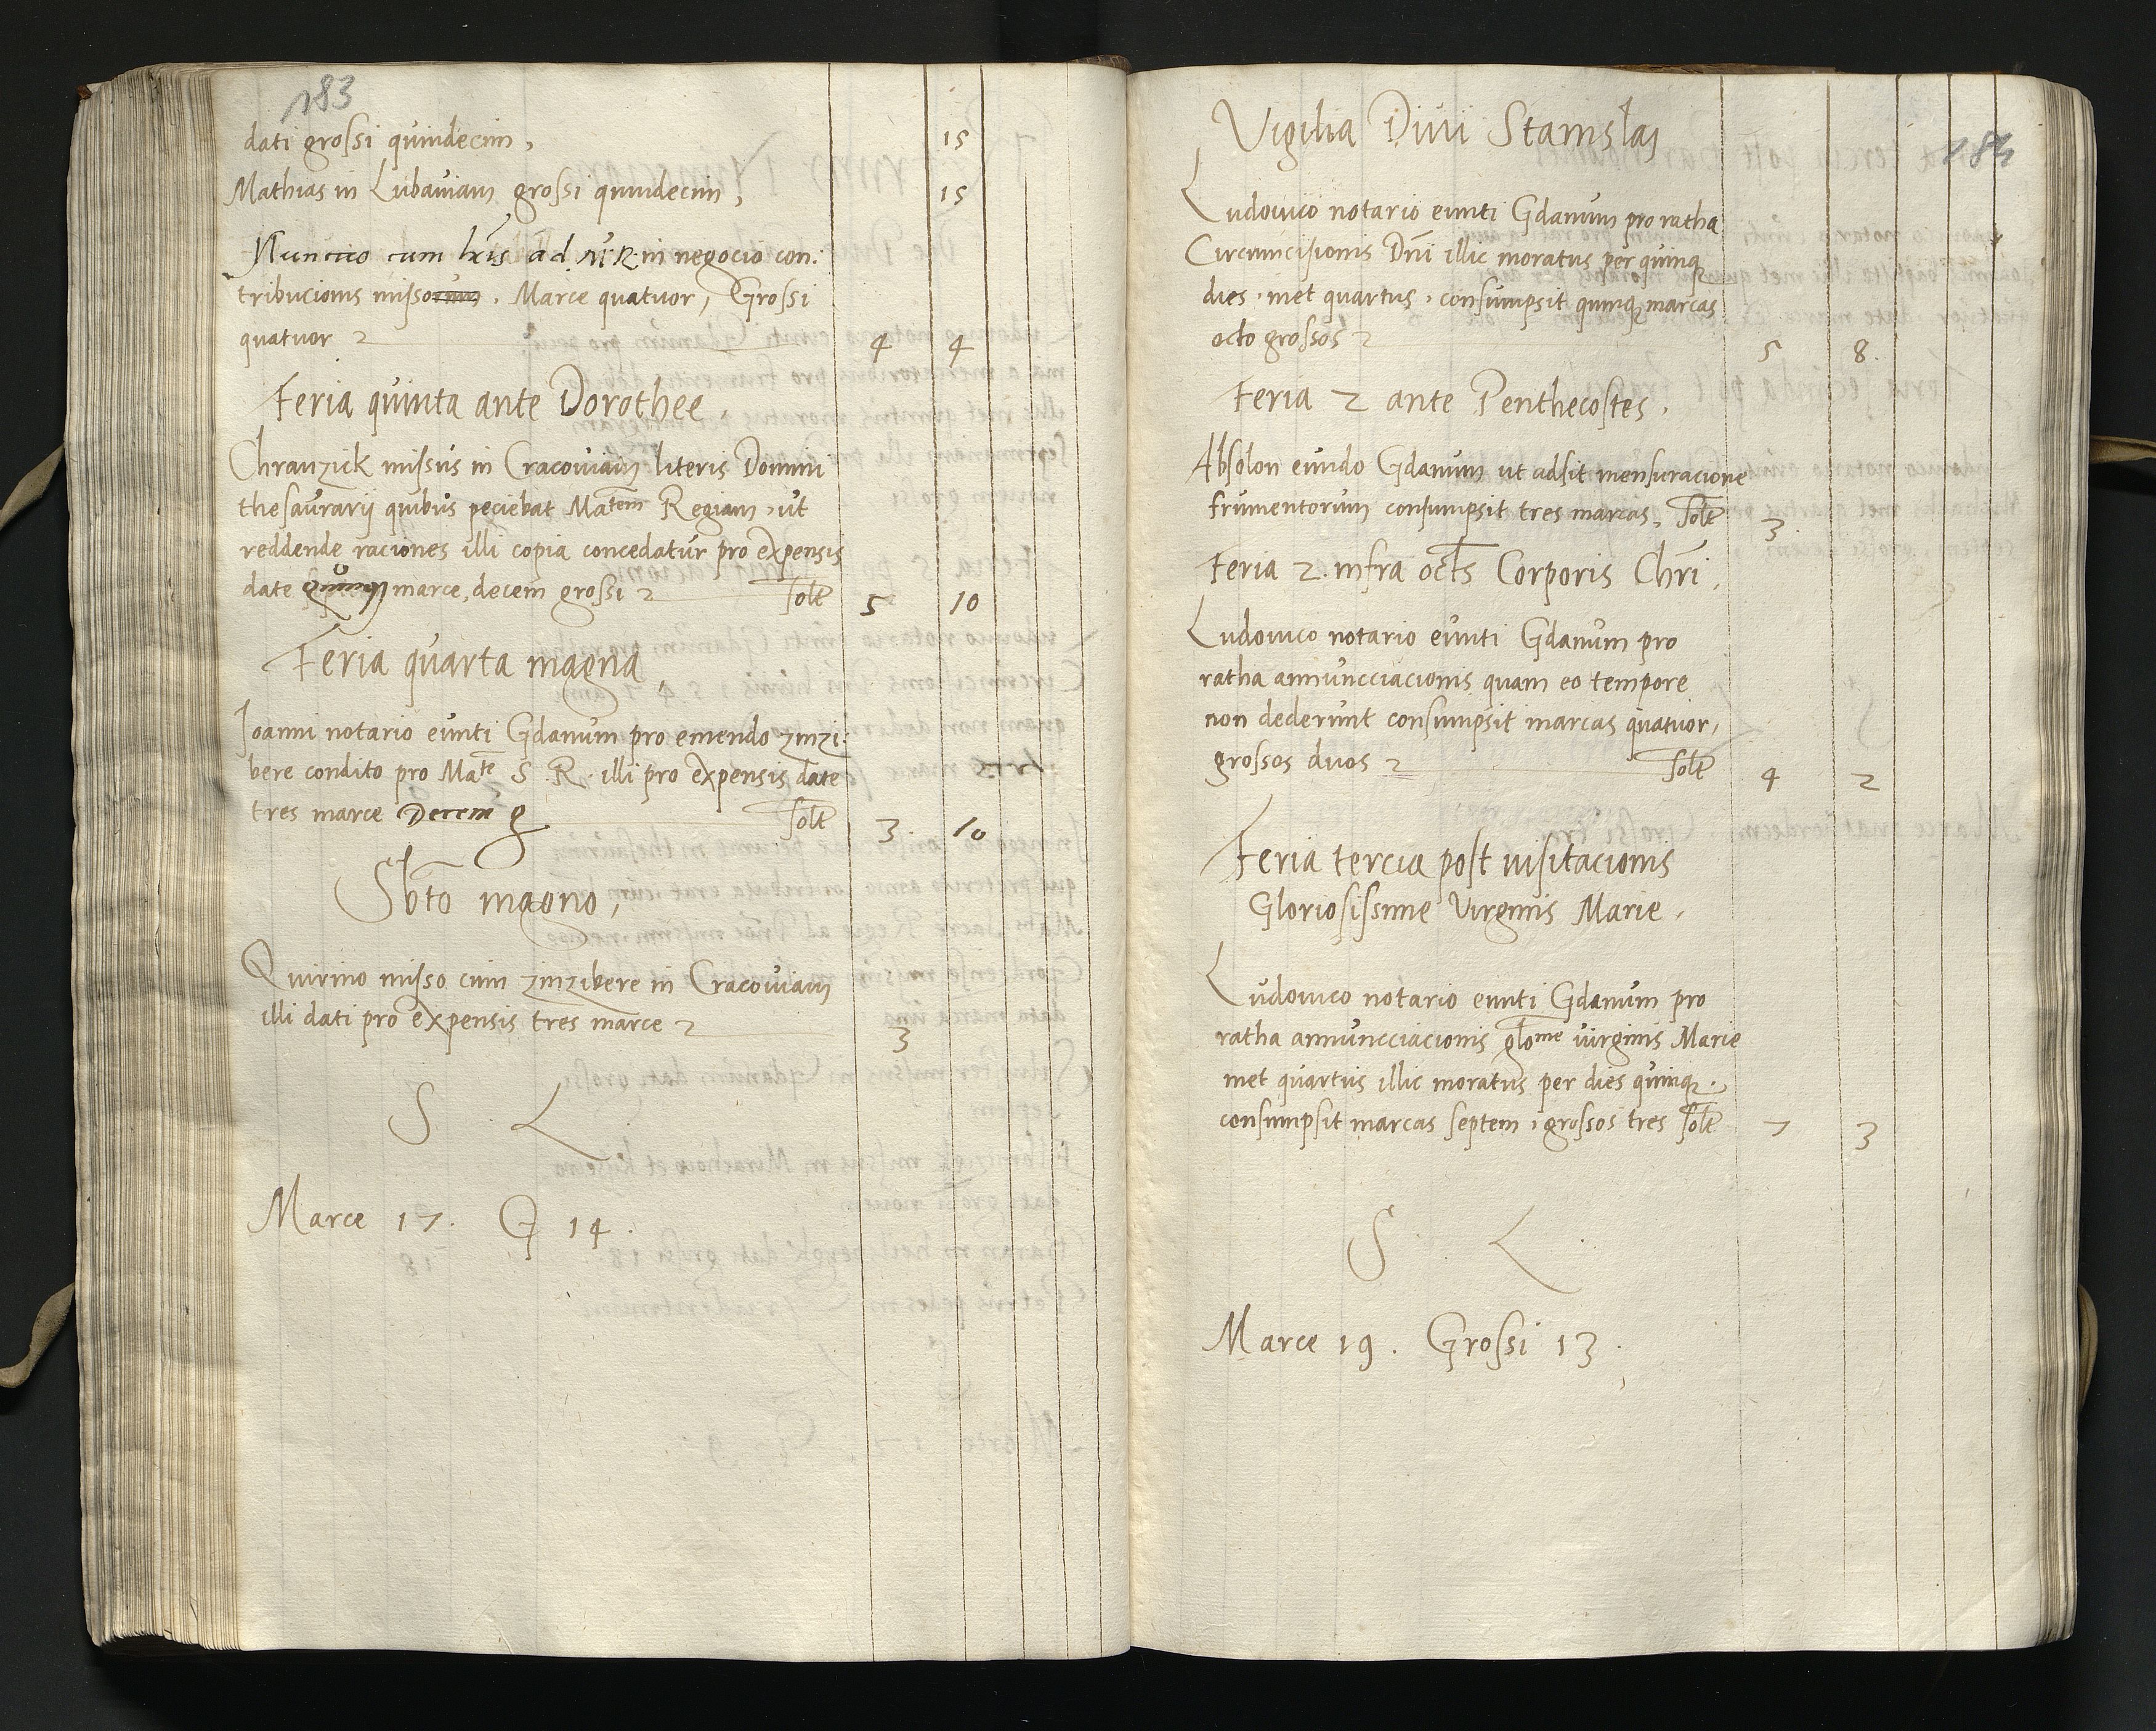 183
dati grossi quindecim, 15
Mathias in Lubaviam grossi quindecim, 15
Nuncio cum lr̃is ad M: R: in negocio con:
tribucionis misso. Marce quatuor, Grossi
quatuor 4 4
Feria quinta ante Dorothee
Chranzick missus in Cracoviam literis Domini
thesaurarij quibus peciebat Matem Regiam, ut
reddende raciones illi copia concedatur pro expensis
date quinque marce, decem grossi solt 5 10
Feria quarta magna
Ioanni notario eunti Gdanum pro emendo zinzi:
bere condito pro Mate S. R. illi pro expensis date
tres marce Decem g solt 3. 10
Sbto magno,
Quirino misso cum zinzibere in Cracoviam
illi dati pro expensis tres marce 3
S L
Marce 17. G 14.
184
Vigilia Divi Stanislaj
Ludovico notario eunti Gdanum pro ratha
Circumcisionis Dñi illic moratus per quinq
dies, met quartus, consumpsit quinq marcas
octo grossos 5 8.
Feria 2 ante Penthecostes.
Absolon eundo Gdanum ut adsit mensuracione
frumentorum consumpsit tres marcas, solt 3.
Feria 2. infra octs Corporis Chri,
Ludovico notario eunti Gdanum pro
ratha annuncciacionis quam eo tempore
non dederunt consumpsit marcas quatuor,
grossos duos solt 4 2
Feria tercia post visitacionis
Gloriosissime Virginis Marie,
Ludovico notario eunti Gdanum pro
ratha annuncciacionis glome virginis Marie
met quartus illic moratus per dies quinq.,
consumpsit marcas septem, grossos tres solt 7 3
S L
Marce 19. Grossi 13.